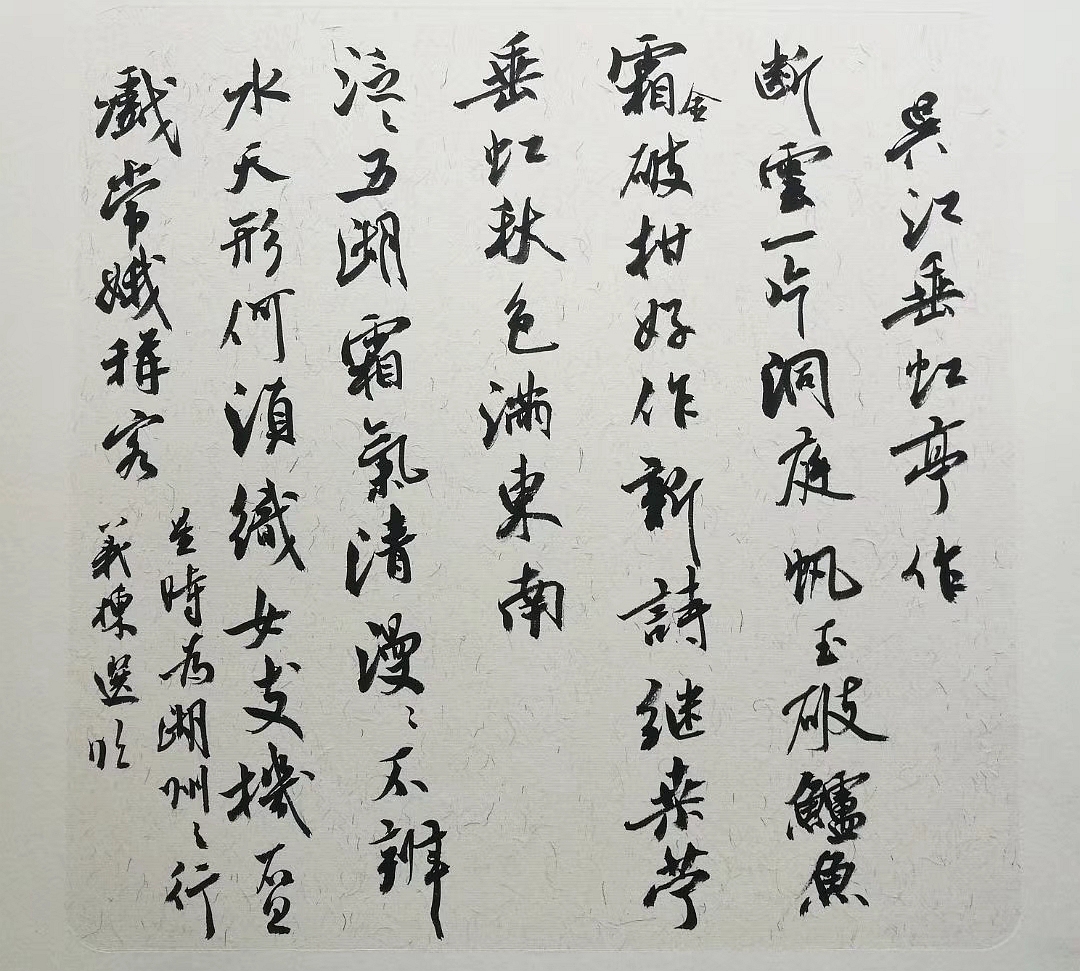 吳江垂虹亭作
断雲一片洞庭帆玉破鱸魚
霜金破柑好作新詩継桑苧
垂虹秋色滿東南
泛〻五湖霜氣清漫〻不辨
水天形何須織女支機石且
戲常娥稱客
星時為湖州〻行
義棟選臨